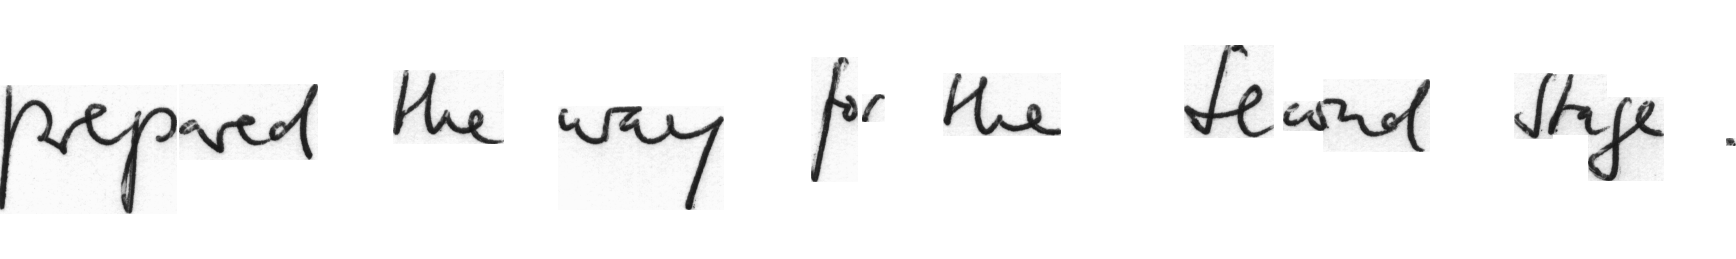 prepared the way for the second stage .